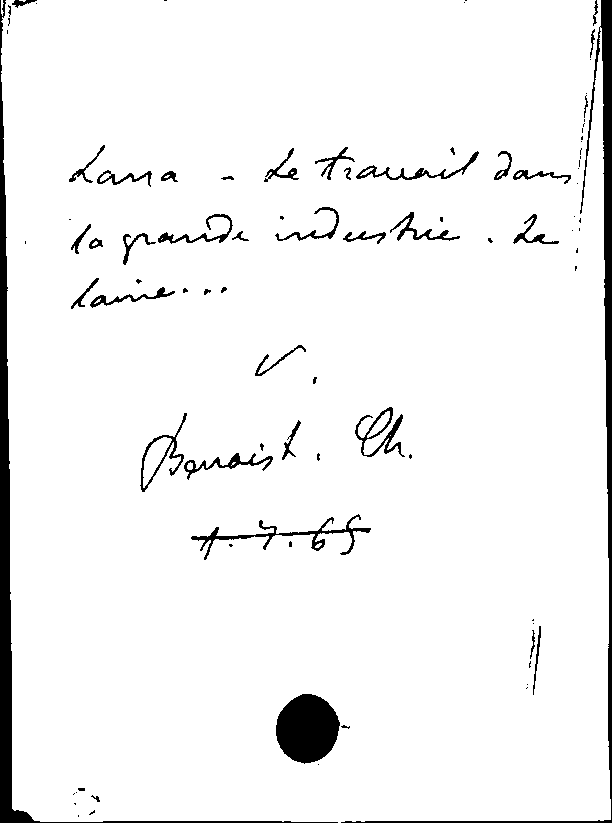 Lana - Le travail dans
la grande industrie. La
laine...
V.
Benoist. Ch.
1.7.69